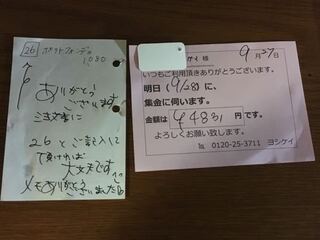 26 ポケットフォンデュ
1080
ありがとう
ございます
注文書に
26とご記入して
頂ければ
大丈夫です
メモありがとう
ございました
様
9月27日
いつもご利用頂きありがとうございます。
明日(9/28)に、
集金に伺います。
金額は ¥4831 円です。
よろしくお願い致します。
℡ 0120-25-3711 ヨシケイ